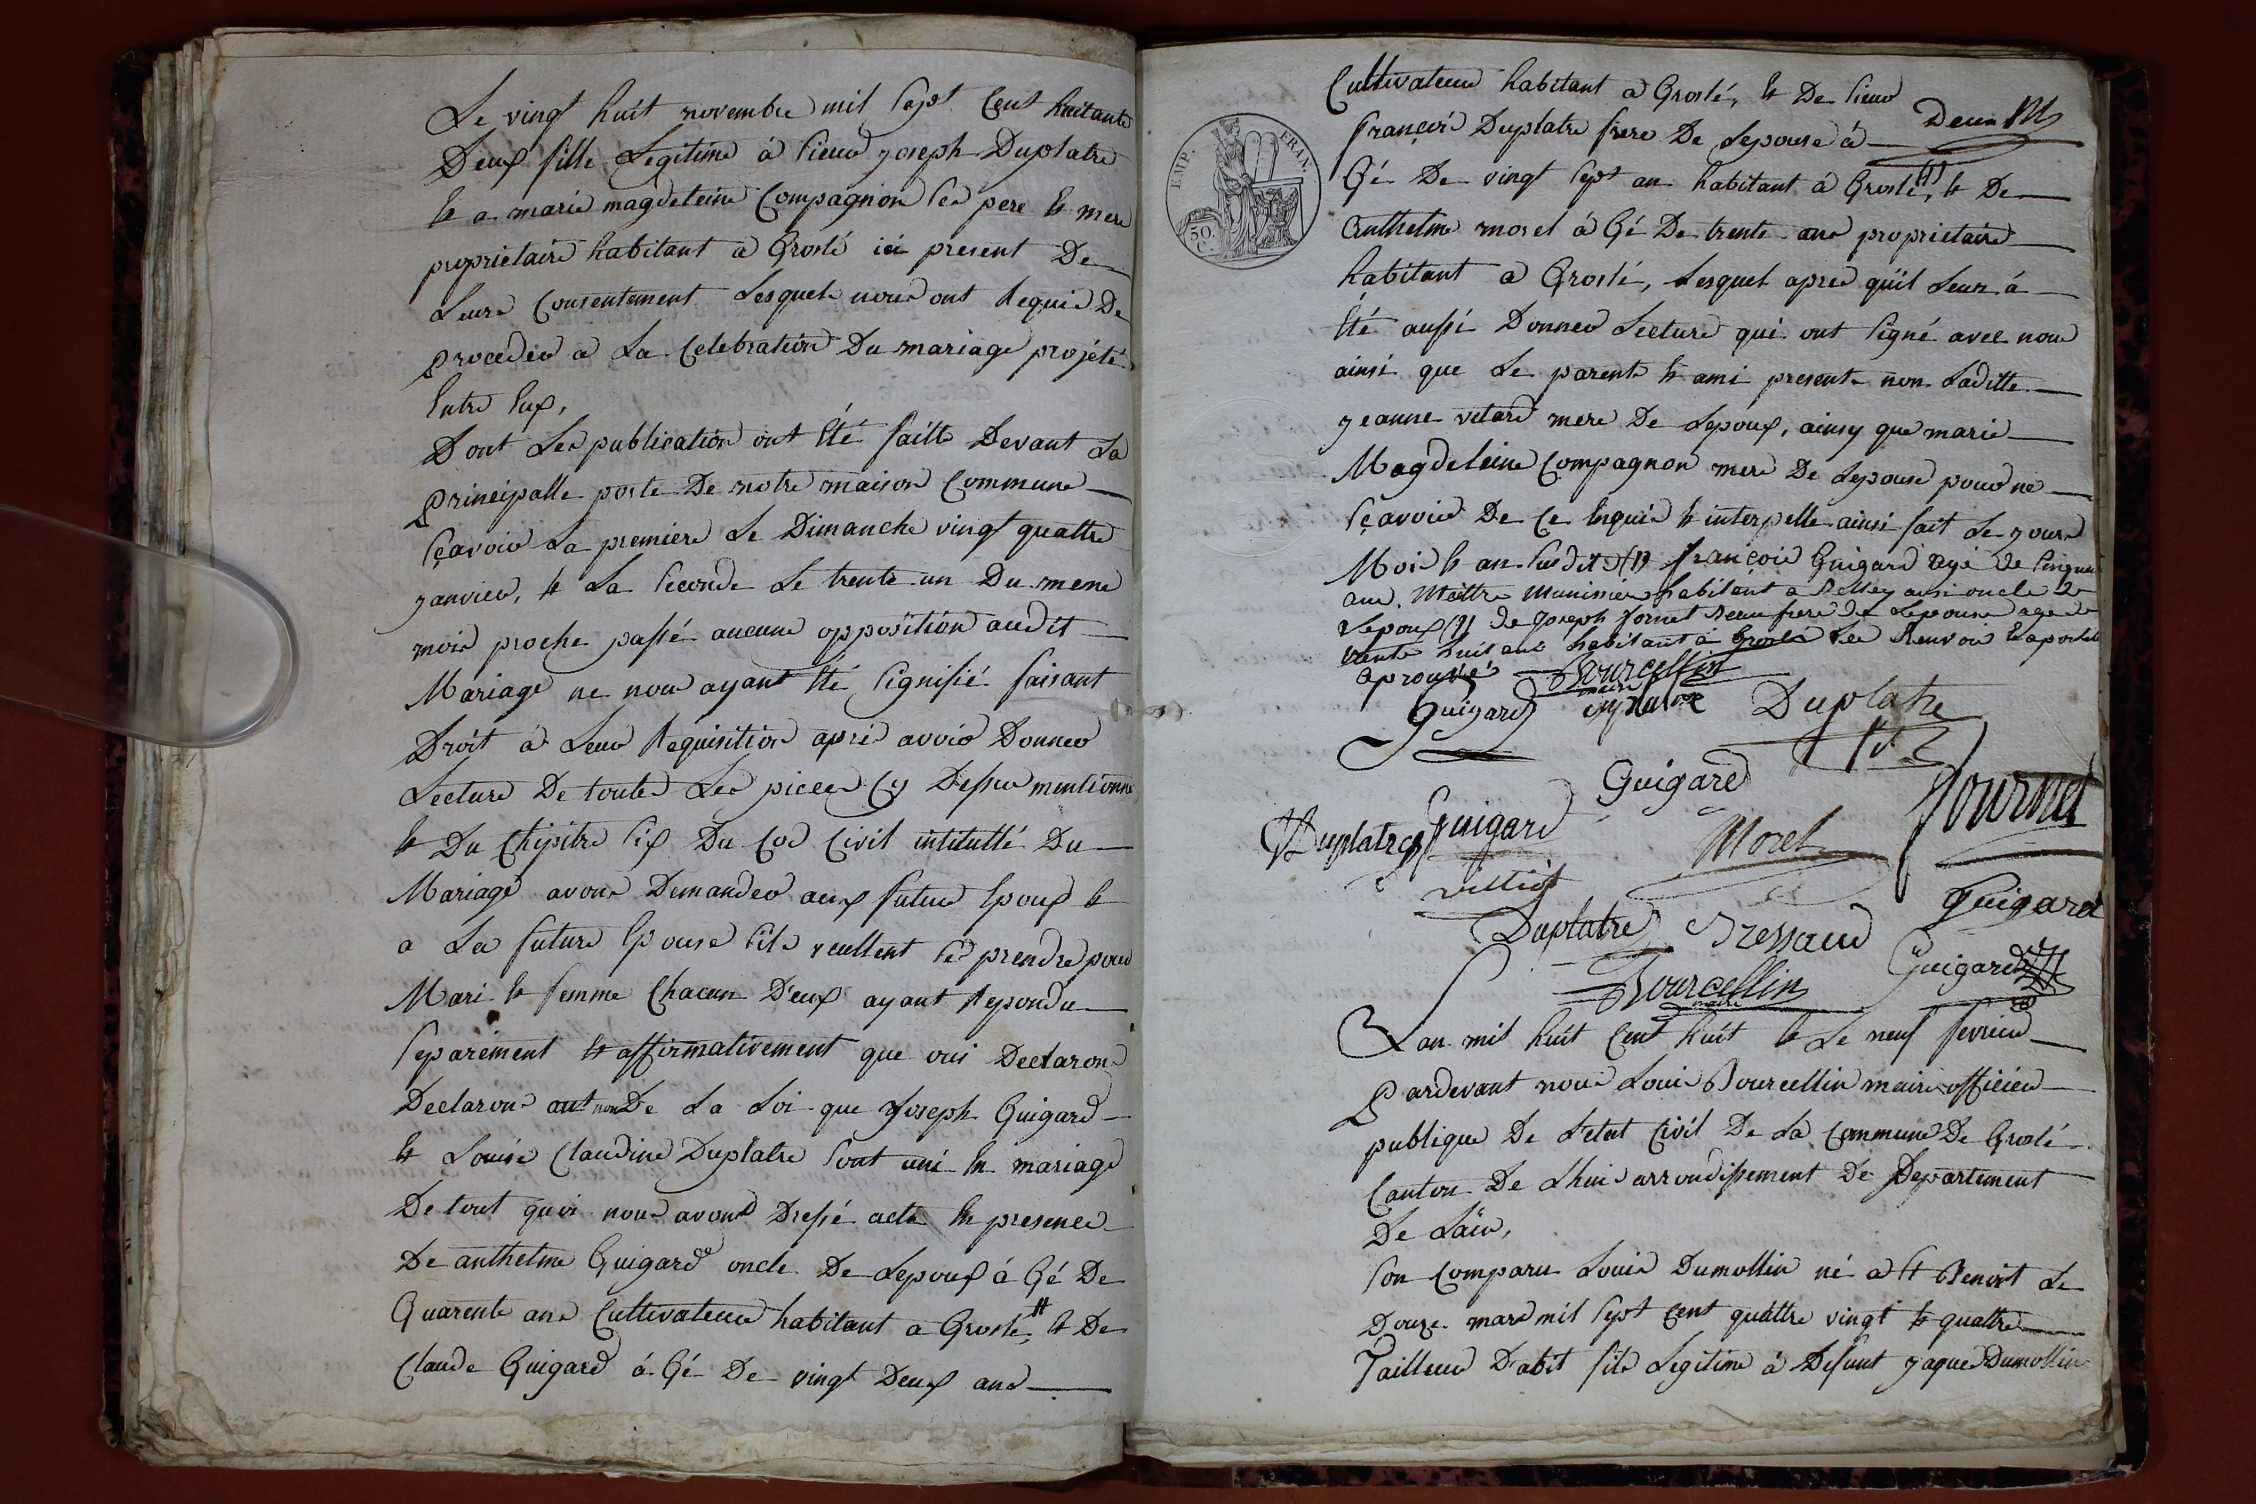 Le vingt huit novembre mil sept cent huitante
Deux fille Legitime á sieur joseph Duplatre
et a marie magdeleine Compagnon ses pere et mere
proprietaire habitant a Groslé ici present De
Leurs Consentement Lesquels nous ont Requis De
Proceder a La Celebration Du mariage projété
Entre Eux,
Dont Les publication ont Eté faitte Devant La
Principalle porte De notre maison Commune
sçavoir La premiere Le Dimanche vingt quattre
janvier, et La seconde Le trente un Du meme
mois proche passé aucune opposition audit
Mariage ne nous ayant Eté signifié faisant
Droit á Leur Requisition aprés avoir Donner
Lecture De toutes Les pieces Cy Dessus mentionné
et Du Chipitre six Du Code Civil intitutté Du
Mariage avons Demander aux futur Epoux et
a La future Epouse s'ils veullent se prendre pour
Mari et femme Chacun D'eux ayant Repondu
separément et affirmativement que oui Declarons
Declarons aut nom De La Loi que Joseph Guigard
et Louise Claudine Duplatre sont uni En mariage
De tout quoi nous avons Dressé acte En presence
De anthelme Guigard oncle De Lepoux á Gé De
Quarente ans Cultivateur habitant a Groslé, # et De
Claude Guigard á Gé De vingt Deux ans
Cultivateur habitant a Groslé, et De sieur
François Duplatre frere De Lepouse á
Deux M
Gé De vingt sept an habitant á Groslé, (1) et De
Anthelme morel á Gé De trente ans proprietaire
habitant a Groslé, Lesquel apres qu'il Leur á
Eté aussi Donner Lecture qui ont signé avec nous
ainsi que Le parents et ami presents non Laditte
jeanne vetard mere De Lepoux, ainsy que marie
Magdeleine Compagnon mere De Lepouse pour ne
sçavoir De Ce Enquis et interpelle ainsi fait Les jours
Mois et an susdit # François Guigard agé de Cinquante
ans. Maittre Munisier habitant a Belley aussi oncle De
Lepoux (1) de Joseph fornet Beau frere de Lepouse age de
trente huit ans habitant á Groslé Les Renvois Et apostille
aprouvé Bourcellin
maire
Guigard Duplatre
Guigard
Duplatre Guigard Morel fournet
Guigard
Duplatre Bressaud
Bourcellin Guigard
maire
Lan mil huit Cent huit et Le neuf fevrier
Pardevant nous Louis Bourcellin maire officier
publique De L'etat Civil De La Commune De Groslé
Canton De Lhuis arrondissement De Departement
De Lain,
son Comparu Louis Dumollin né a St Benoit Le
Douze mars mil sept Cent quattre vingt et quattre
Tailleur D'abit fils Legitime á Defunt jaques Dumollin
EMP. FRAN.
50.
C.